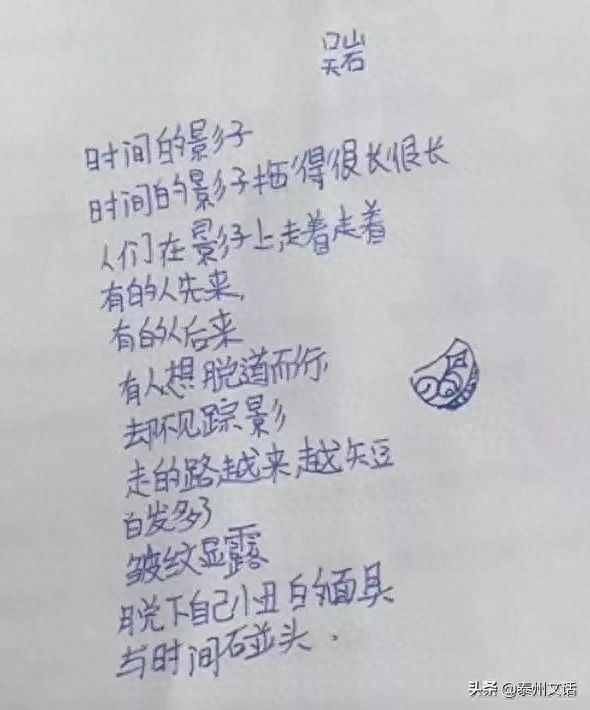 吴岩
时间的影子
时间的影子拖得很长很长
人们在影子上,走着走着
有的人先来,
有的人后来
有人想脱道而行,
却不见踪影
走的路,越来,越矢豆
白发多了
皱纹显露
脱下自己小丑的面具
与时间碰头.
头条 @泰州文话